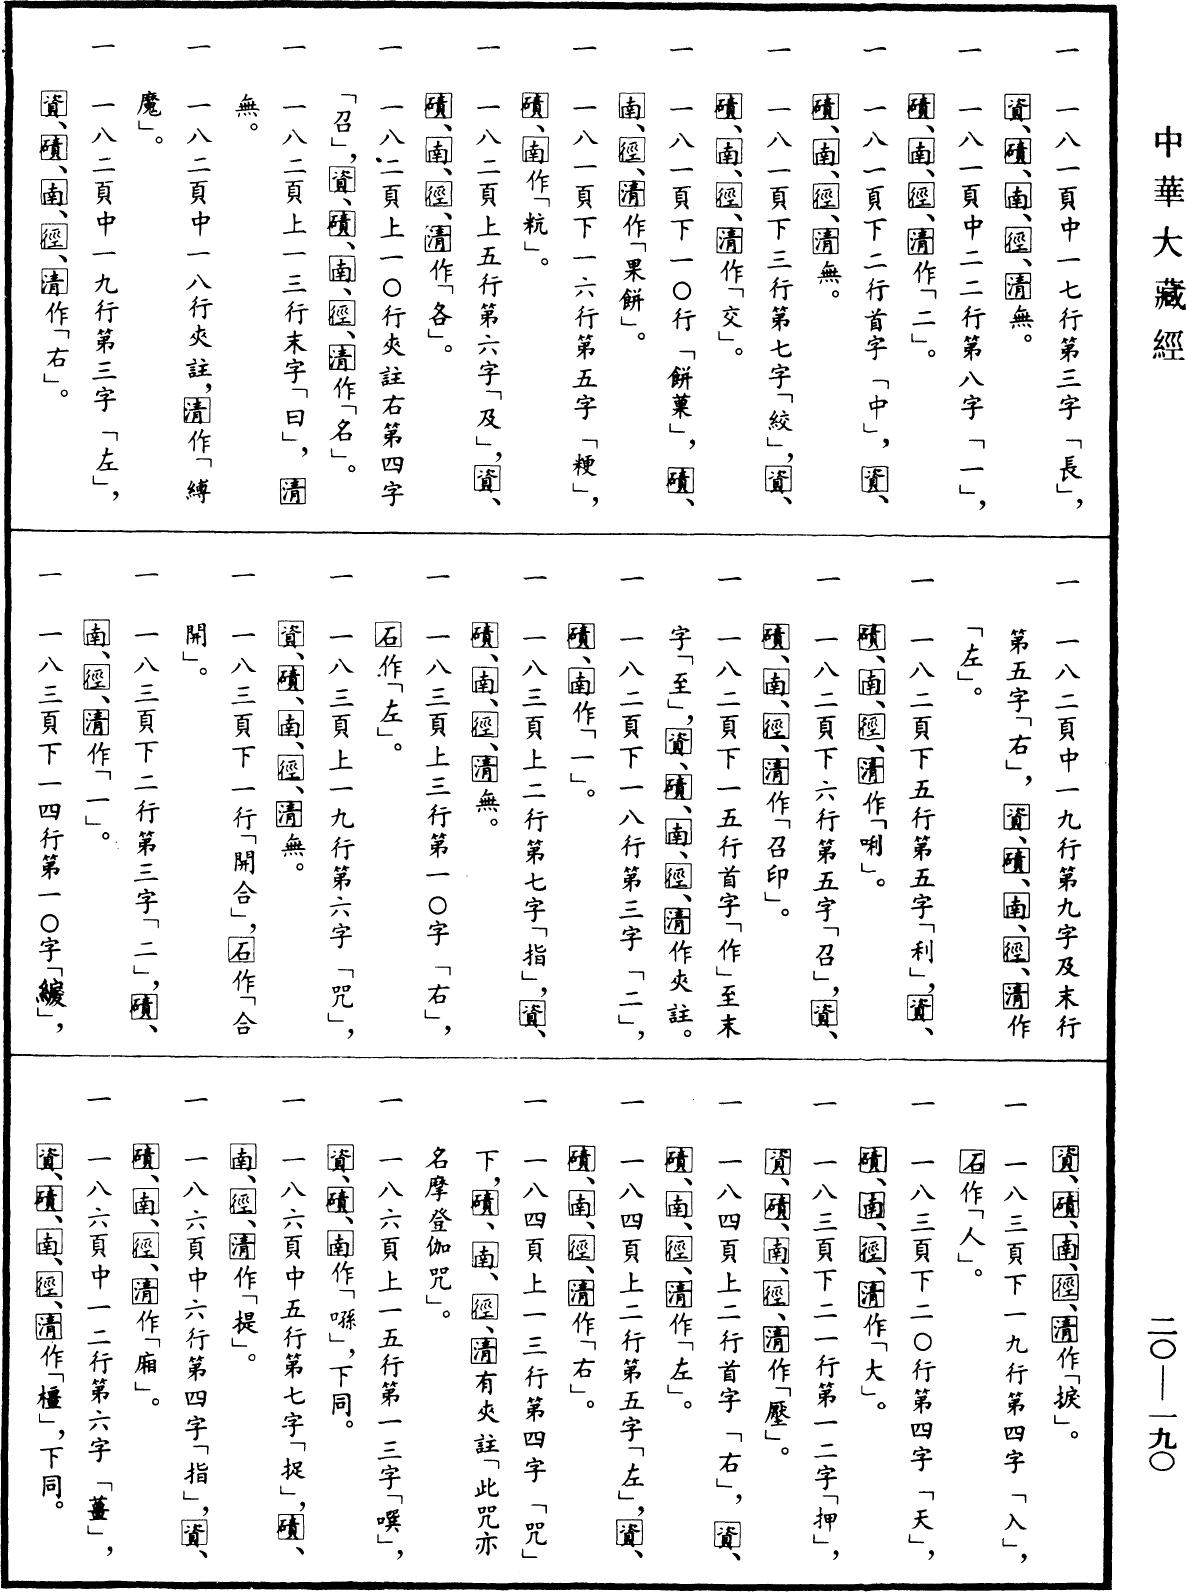 中華大藏經
一 一八一頁中一七行第三字「長」，
資、磧、南、徑、清無。
一 一八一頁中二二行第八字「一」，
磧、南、徑、清作「二」。
一 一八一頁下二行首字「中」，資、
磧、南、徑、清無。
一 一八一頁下三行第七字「絞」，資、
磧、南、徑、清作「交」。
一 一八一頁下一〇行「餅菓」，磧、
南、徑、清作「果餅」。
一 一八一頁下一六行第五字「粳」，
磧、南作「秔」。
一 一八二頁上五行第六字「及」，資、
磧、南、徑、清作「各」。
一 一八二頁上一〇行夾註右第四字
「召」，資、磧、南、徑、清作「名」。
一 一八二頁上一三行末字「曰」，清
無。
一 一八二頁中一八行夾註，清作「縛
魔」。
一 一八二頁中一九行第三字「左」，
資、磧、南、徑、清作「右」。
一 一八二頁中一九行第九字及末行
第五字「右」，資、磧、南、徑、清作
「左」。
一 一八二頁下五行第五字「利」，資、
磧、南、徑、清作「唎」。
一 一八二頁下六行第五字「召」，資、
磧、南、徑、清作「召印」。
一 一八二頁下一五行首字「作」至末
字「至」，資、磧、南、徑、清作夾註。
一 一八二頁下一八行第三字「二」，
磧、南作「一」。
一 一八三頁上二行第七字「指」，資、
磧、南、徑、清無。
一 一八三頁上三行第一〇字「右」，
石作「左」。
一 一八三頁上一九行第六字「咒」，
資、磧、南、徑、清無。
一 一八三頁下一行「開合」，石作「合
開」。
一 一八三頁下二行第三字「二」，磧、
南、徑、清作「一」。
一 一八三頁下一四行第一〇字「緩」，
資、磧、南、徑、清作「捩」。
一 一八三頁下一九行第四字「入」，
石作「人」。
一 一八三頁下二〇行第四字「天」，
磧、南、徑、清作「大」。
一 一八三頁下二一行第一二字「押」，
資、磧、南、徑、清作「壓」。
一 一八四頁上二行首字「右」，資、
磧、南、徑、清作「左」。
一 一八四頁上二行第五字「左」，資、
磧、南、徑、清作「右」。
一 一八四頁上一三行第四字「咒」
下，磧、南、徑、清有夾註「此咒亦
名摩登伽咒」。
一 一八六頁上一五行第一三字「噀」，
資、磧、南作「㗭」，下同。
一 一八六頁中五行第七字「捉」，磧、
南、徑、清作「提」。
一 一八六頁中六行第四字「指」，資、
磧、南、徑、清作「廂」。
一 一八六頁中一二行第六字「薑」，
資、磧、南、徑、清作「橿」，下同。
二〇—一九〇